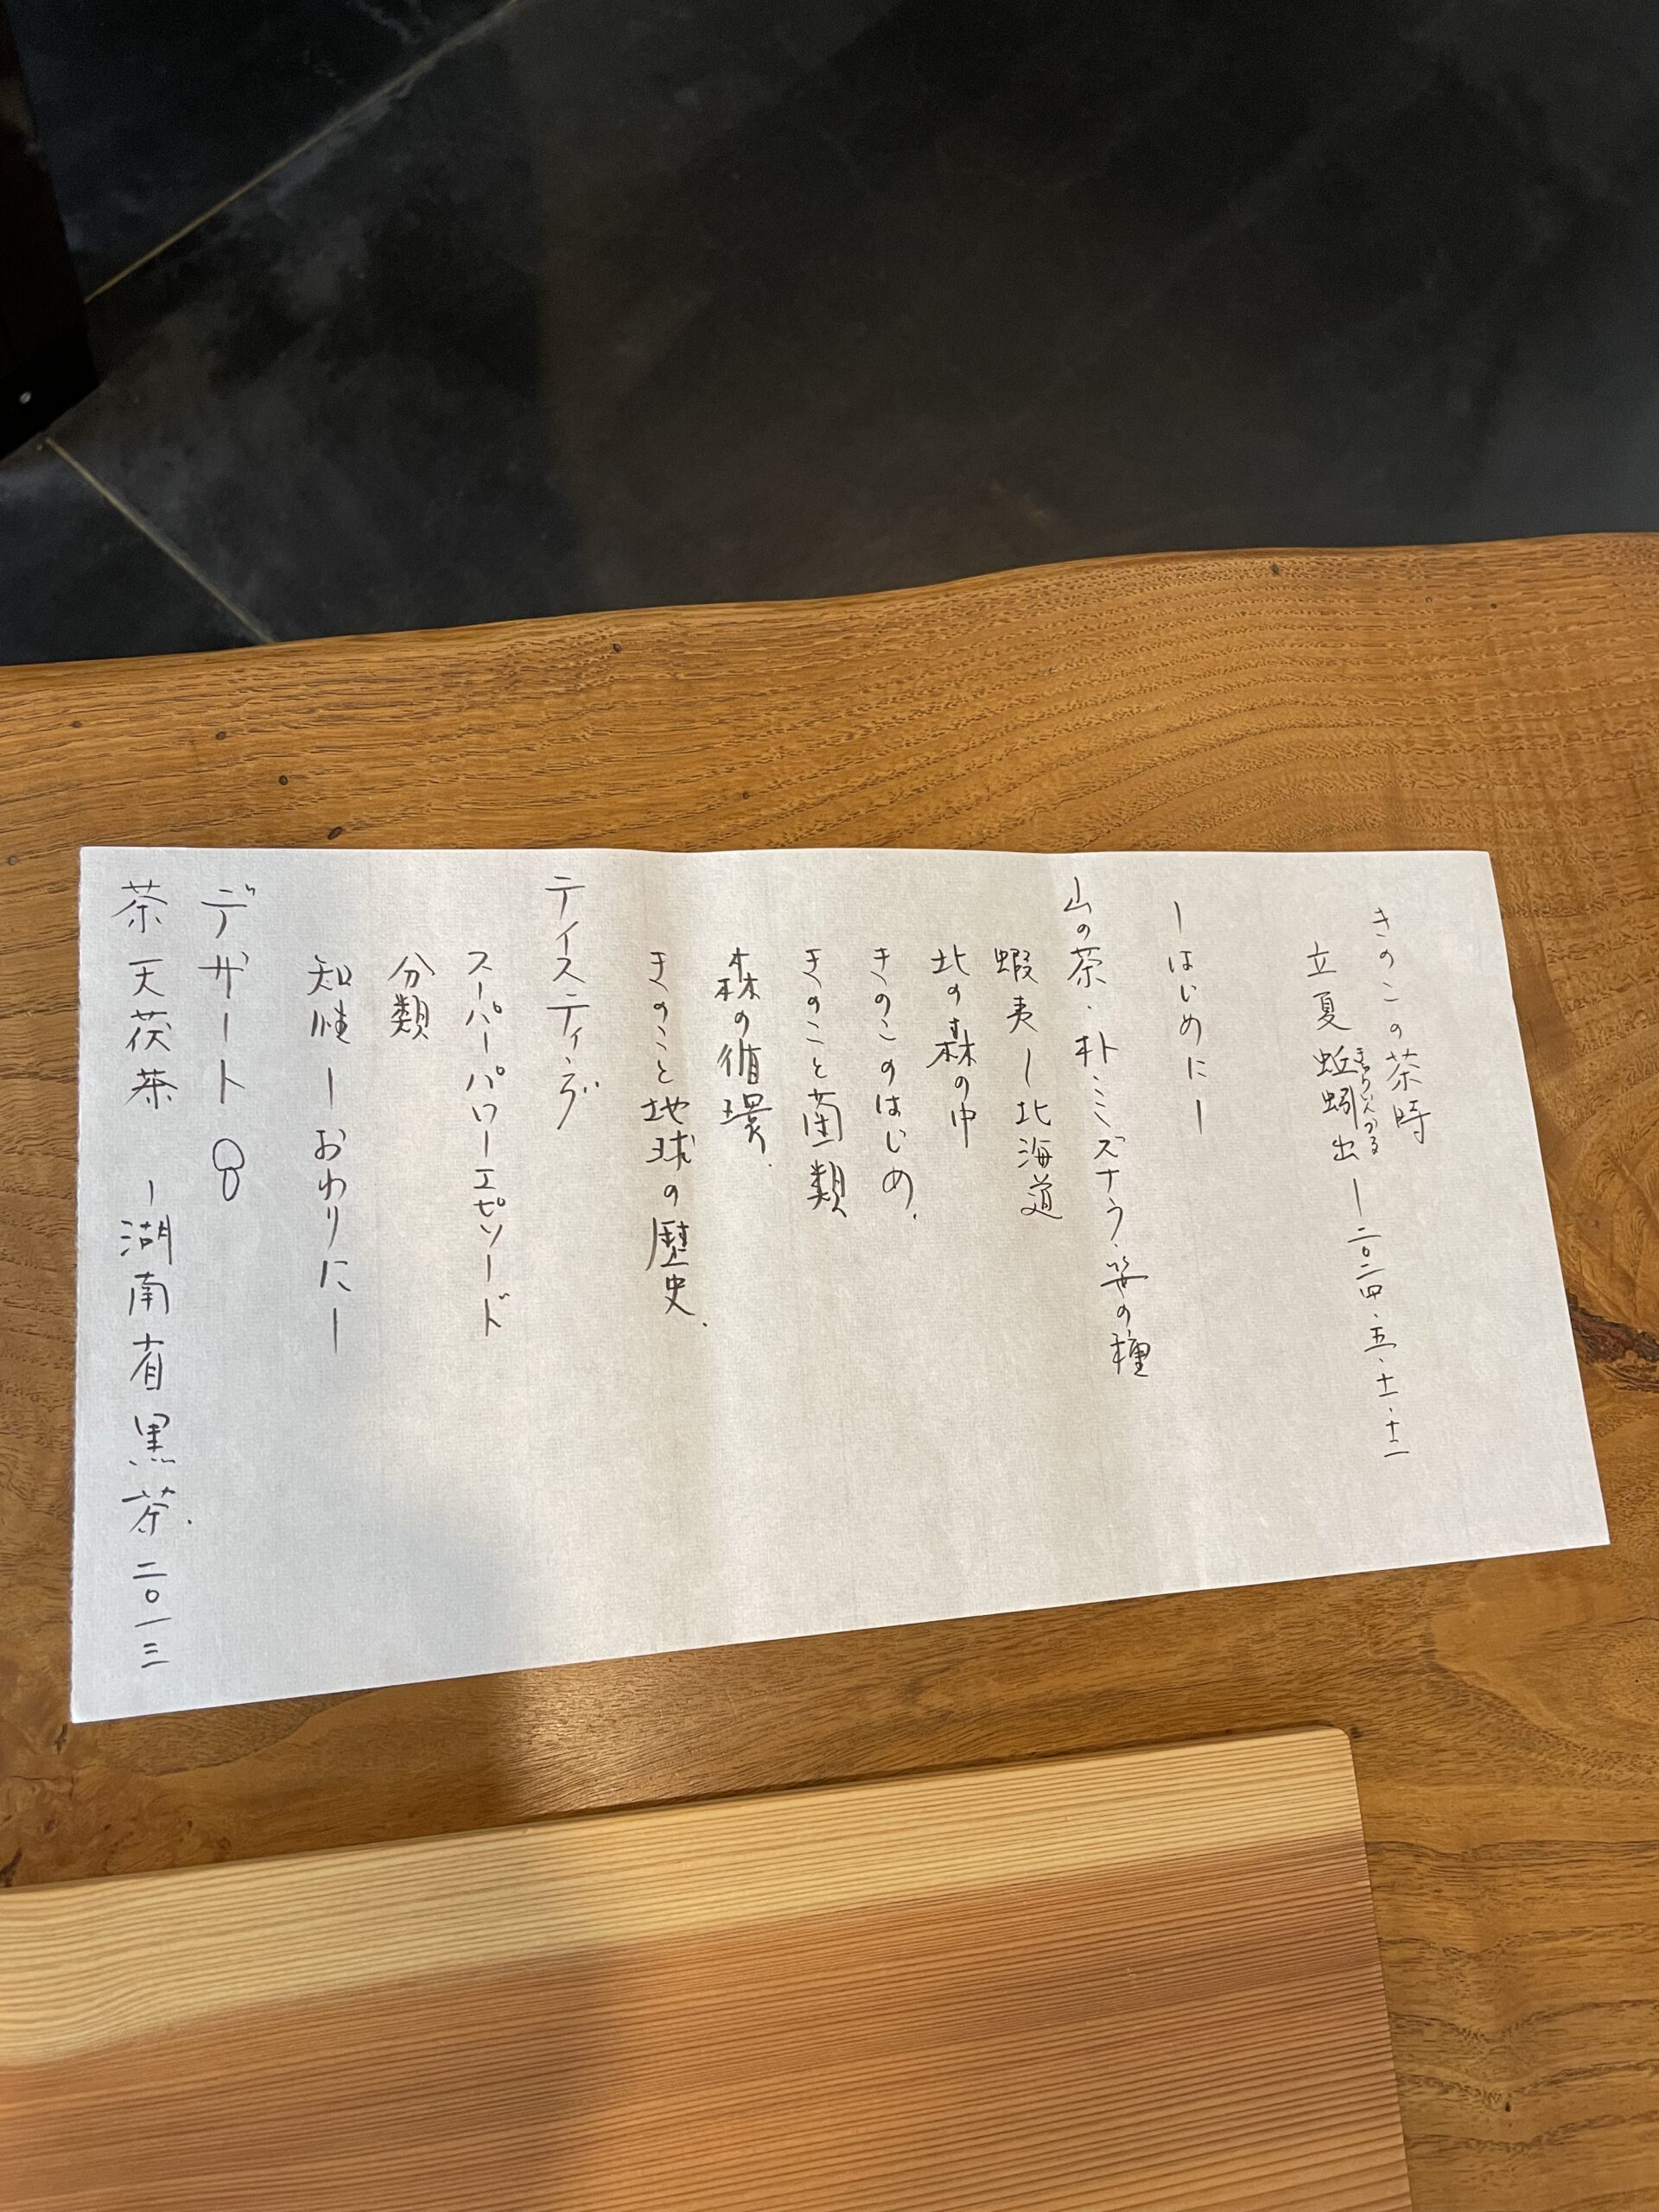 きのこの茶時
立夏 蚯蚓出 ー 二〇二四・五・十一・十二
ーはじめにー
山の茶・朴・ミズナラ・笹の種
蝦夷ー北海道
北の森の中
きのこのはじめ.
きのこと菌類
森の循環.
きのこと地球の歴史.
テイスティング
スーパーパワーエピソード
分類
知性ーおわりにー
デザート
茶 天茯茶 ー湖南省黒茶. 二〇一三